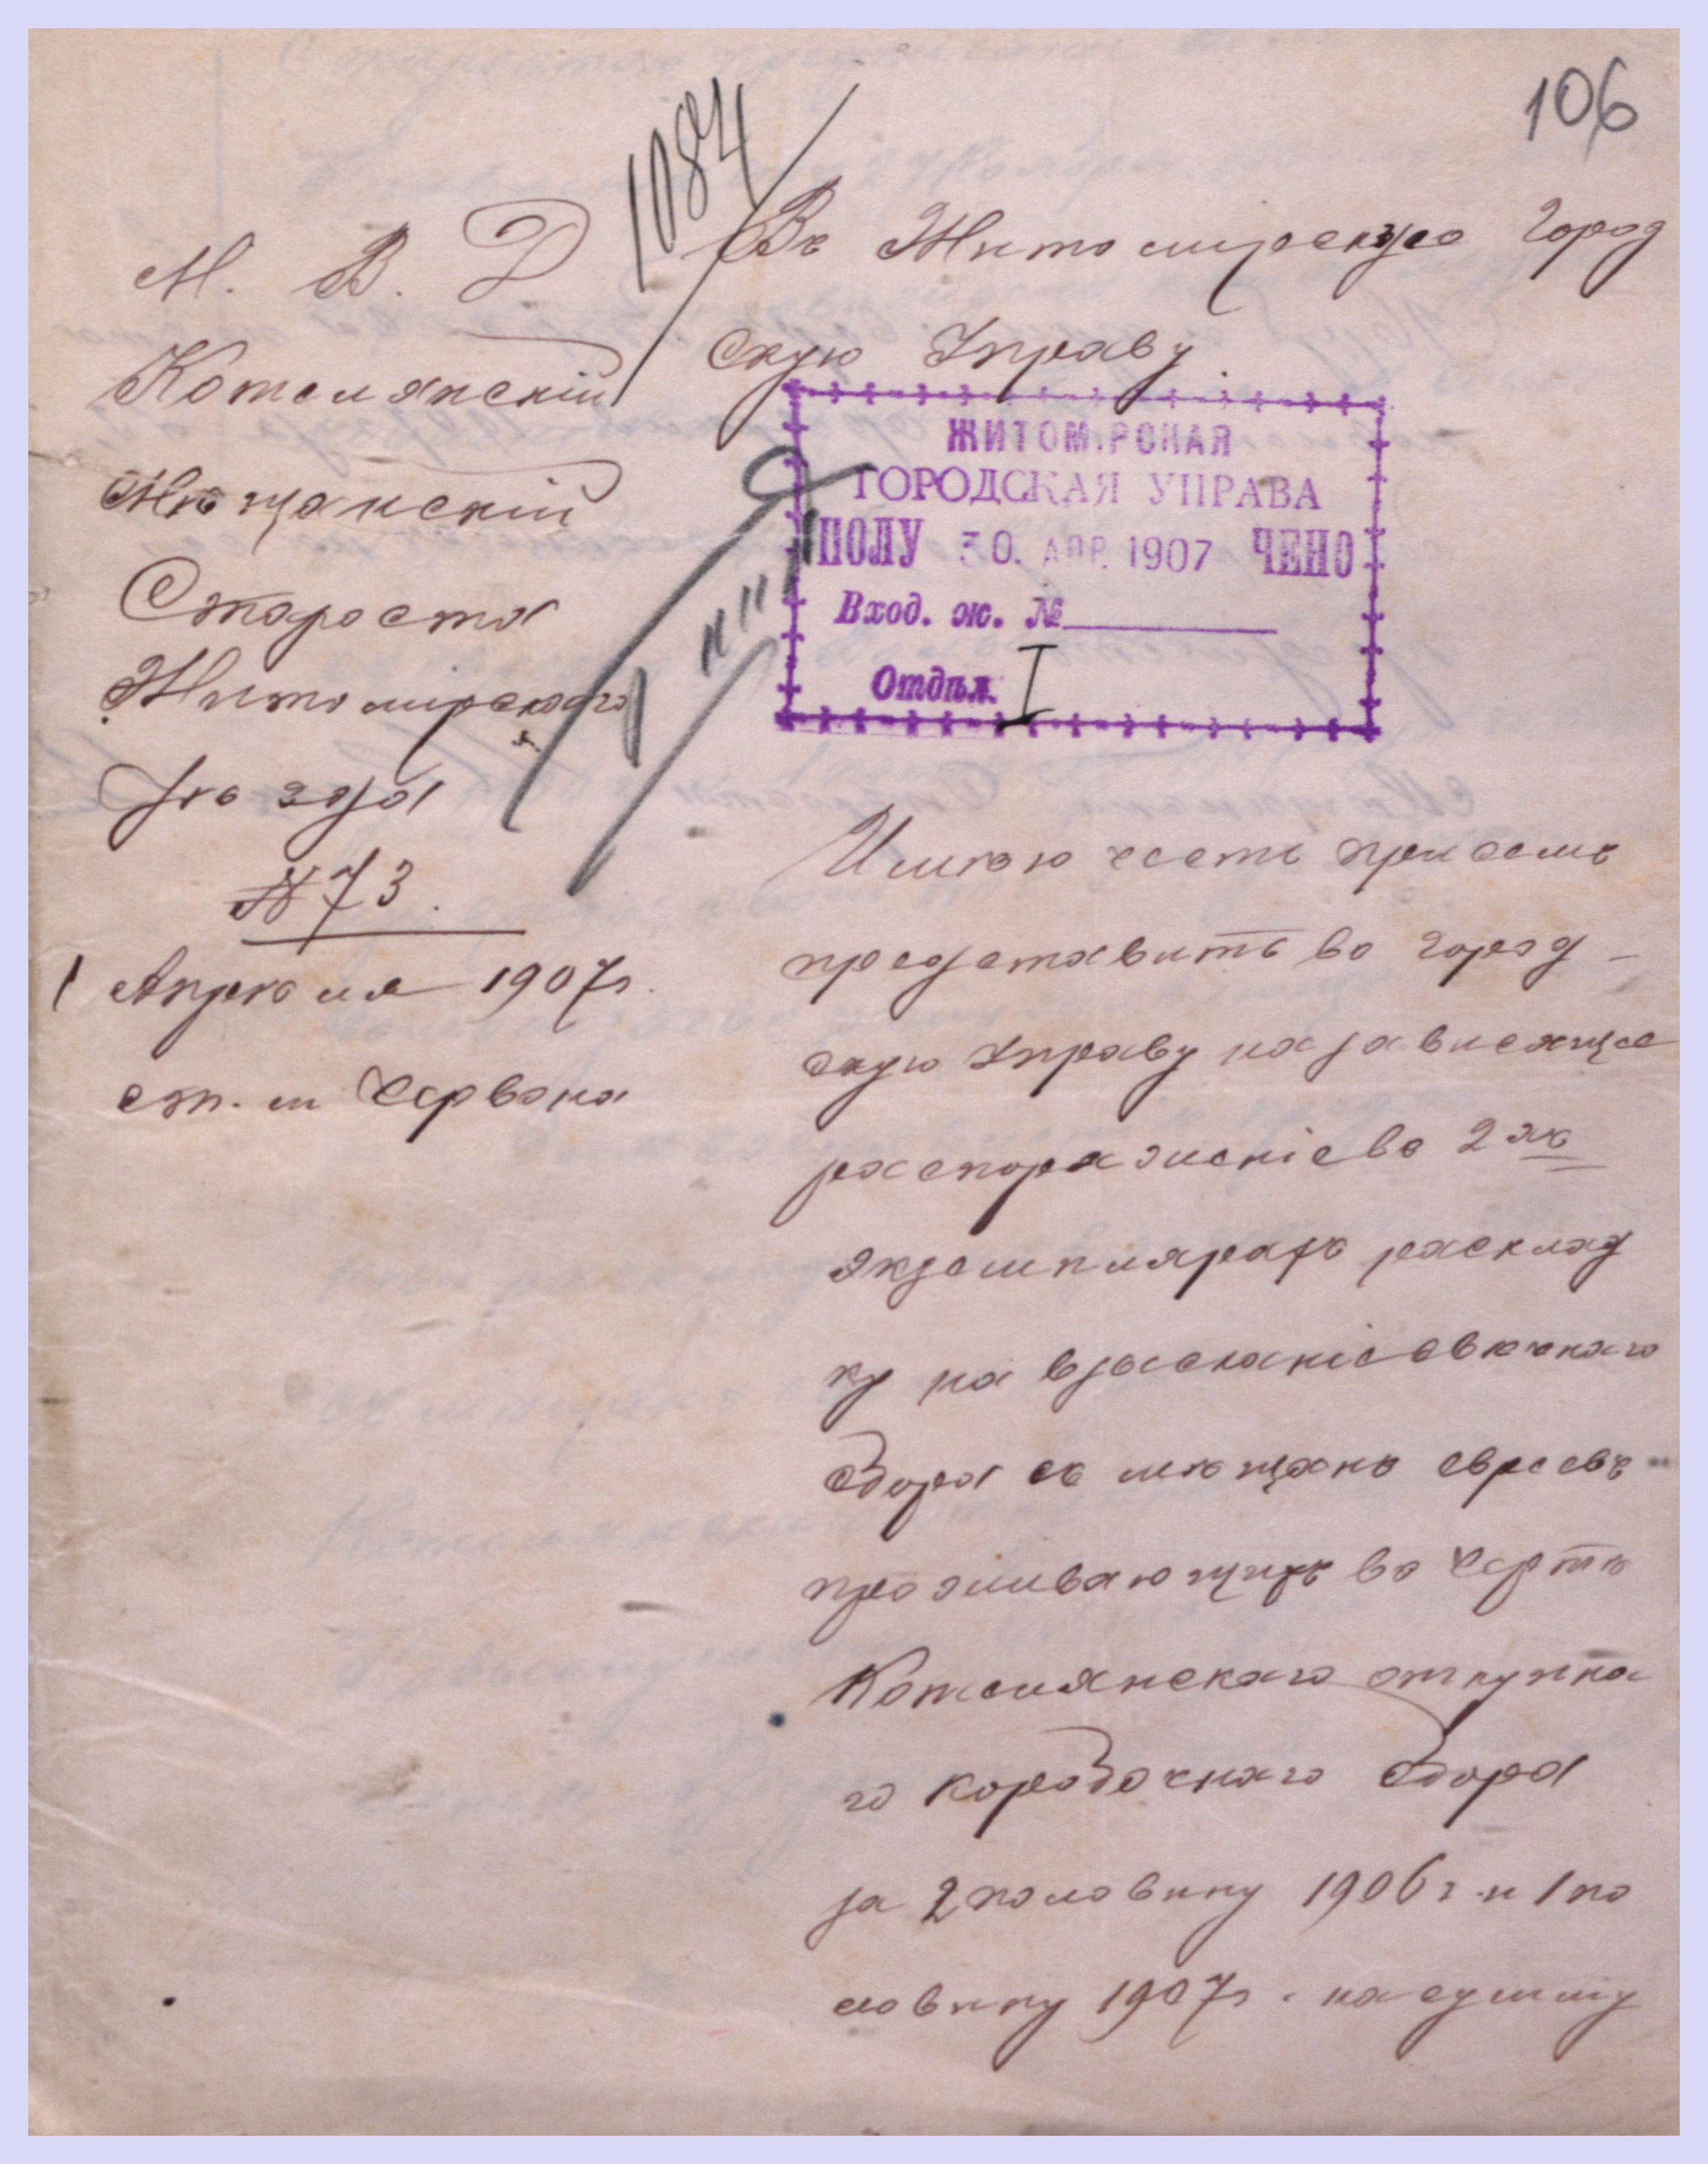 106
1084
М. В. Д
Котелянскій
Мѣщанскій
Староста
Житомірскаго
уѣзда
№ 73.
1 Апрѣля 1907г.
ст. м Червона
Въ Житомірскую Город
скую Управу
ЖИТОМІРСКАЯ
ГОРОДСКАЯ УПРАВА
ПОЛУ 30. АПР. 1907 ЧЕНО
Вход. ж. №
Отдѣл. I
Имѣю честь при семъ
представить въ город-
скую Управу на зависящее
распоряженіе въ 2 хъ
экземплярахъ расклад
ку на взысканіе свѣчнаго
сбора съ мѣщанъ евреевъ
проживающихъ въ чертѣ
Котелянскаго откупна
го коробочнаго сбора
за 2 половину 1906 г. и 1 по
ловину 1907г. на сумму